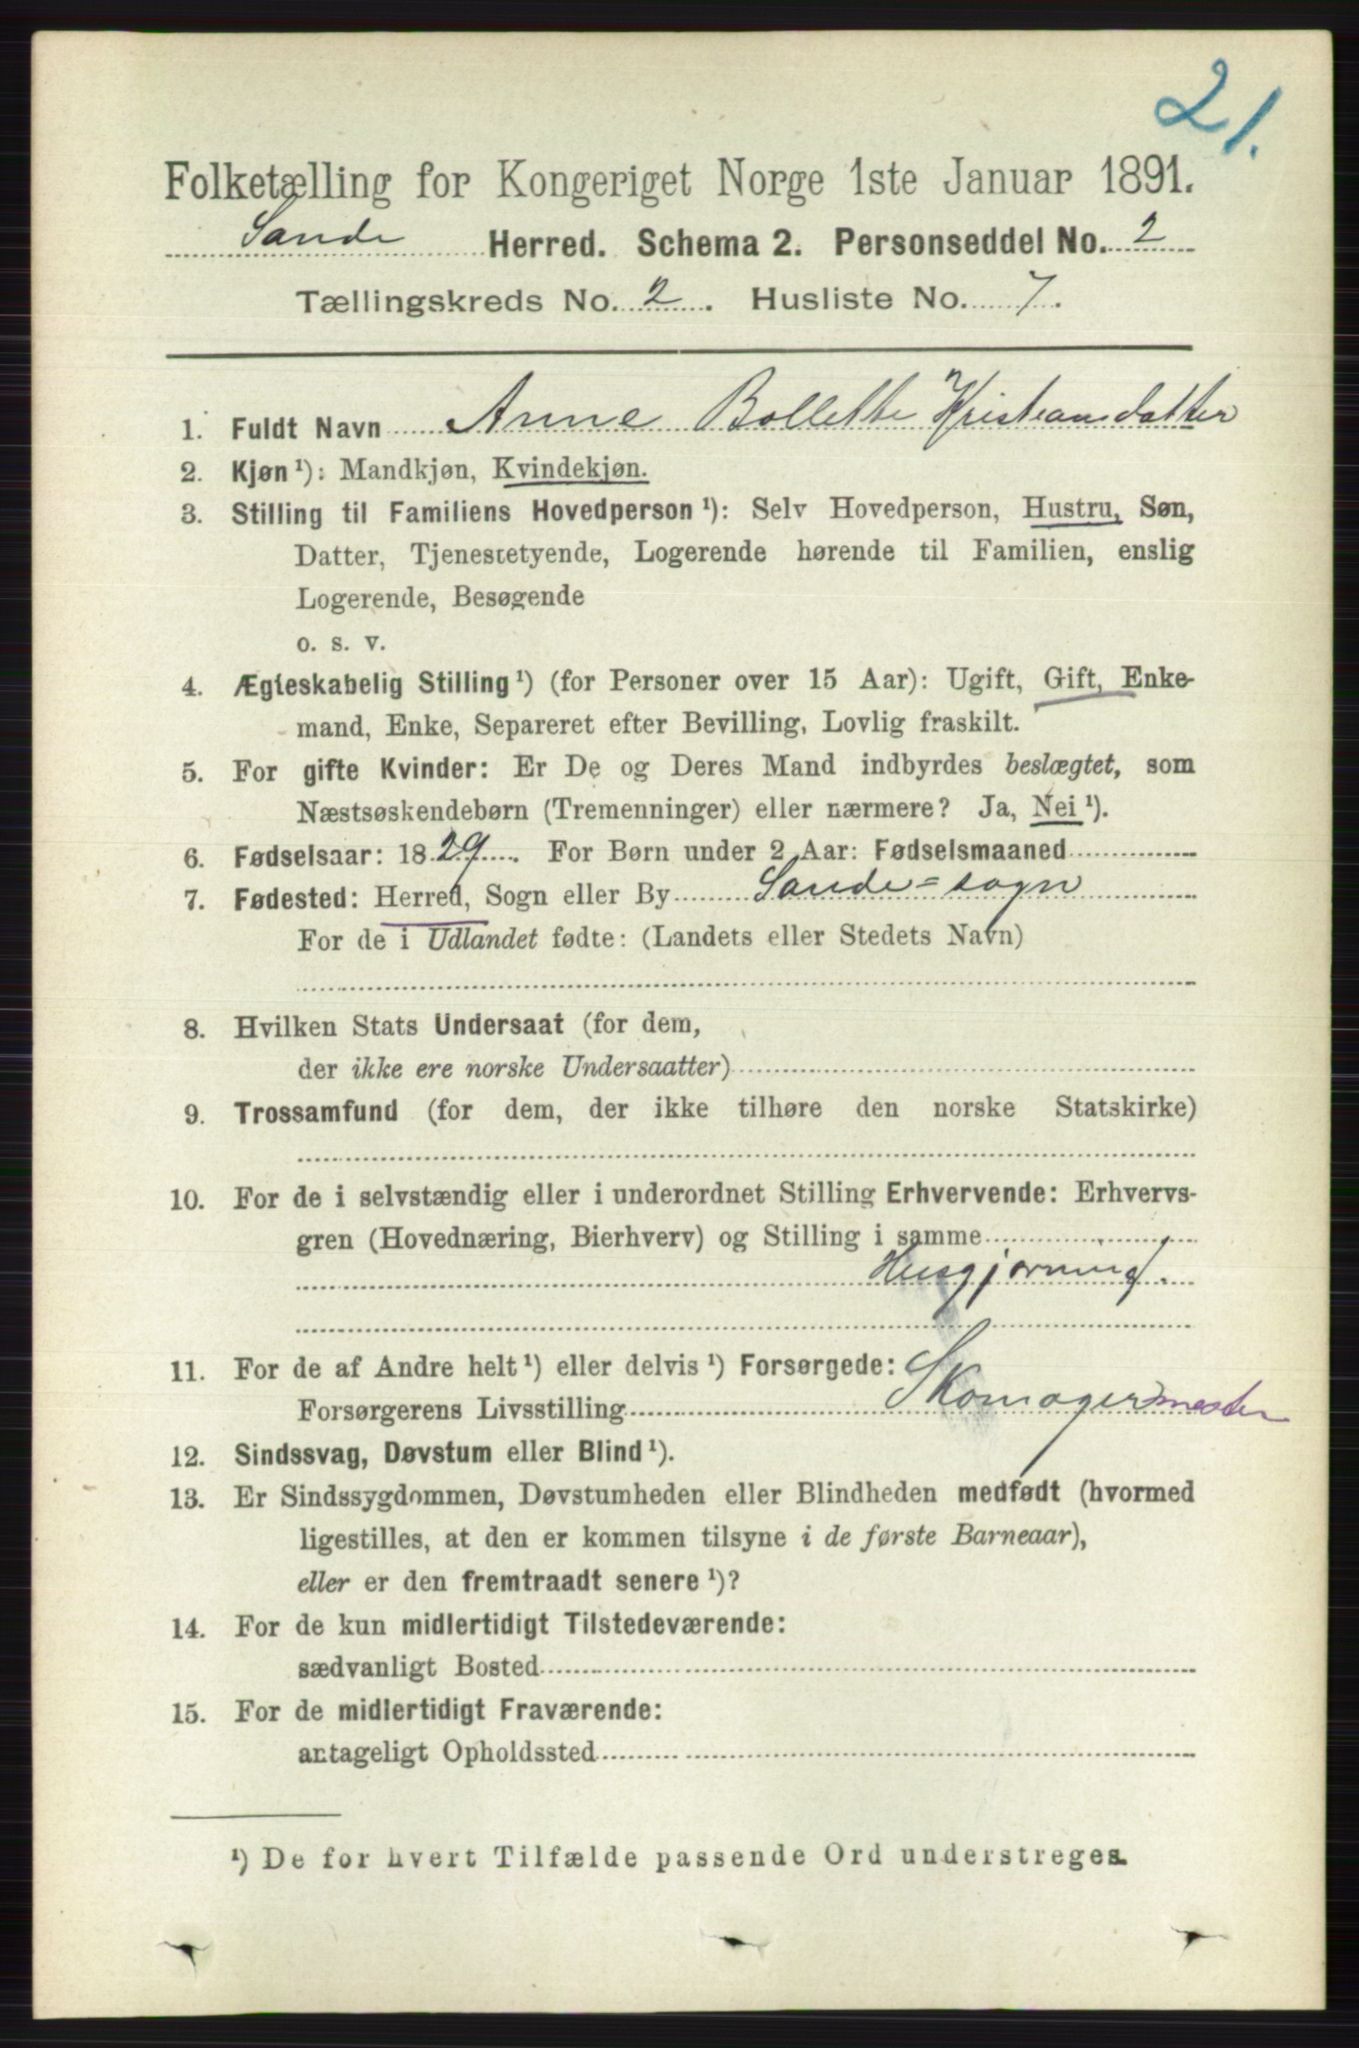 21.
Folketælling for Kongeriget Norge 1ste Januar 1891.
Sande Herred. Schema 2. Personseddel No. 2
Tællingskreds No. 2. Husliste No. 7.
1. Fuldt Navn Anne Bollette Kristiansdatter
2. Kjøn ¹): Mandkjøn, Kvindekjøn.
3. Stilling til Familiens Hovedperson ¹): Selv Hovedperson, Hustru, Søn,
Datter, Tjenestetyende, Logerende hørende til Familien, enslig
Logerende, Besøgende
o. s. v.
4. Ægteskabelig Stilling ¹) (for Personer over 15 Aar): Ugift, Gift, Enke-
mand, Enke, Separeret efter Bevilling, Lovlig fraskilt.
5. For gifte Kvinder: Er De og Deres Mand indbyrdes beslægtet, som
Næstsøskendebørn (Tremenninger) eller nærmere? Ja, Nei ¹).
6. Fødselsaar: 1829. For Børn under 2 Aar: Fødselsmaaned
7. Fødested: Herred, Sogn eller By Sande=sogn
For de i Udlandet fødte: (Landets eller Stedets Navn)
8. Hvilken Stats Undersaat (for dem,
der ikke ere norske Undersaatter)
9. Trossamfund (for dem, der ikke tilhøre den norske Statskirke)
10. For de i selvstændig eller i underordnet Stilling Erhvervende: Erhvervs-
gren (Hovednæring, Bierhverv) og Stilling i samme
Husgjerning.
11. For de af Andre helt ¹) eller delvis ¹) Forsørgede:
Forsørgerens Livsstilling Skomagermester
12. Sindssvag, Døvstum eller Blind ¹).
13. Er Sindssygdommen, Døvstumheden eller Blindheden medfødt (hvormed
ligestilles, at den er kommen tilsyne i de første Barneaar),
eller er den fremtraadt senere ¹)?
14. For de kun midlertidigt Tilstedeværende:
sædvanligt Bosted
15. For de midlertidigt Fraværende:
antageligt Opholdssted
¹) De for hvert Tilfælde passende Ord understreges.